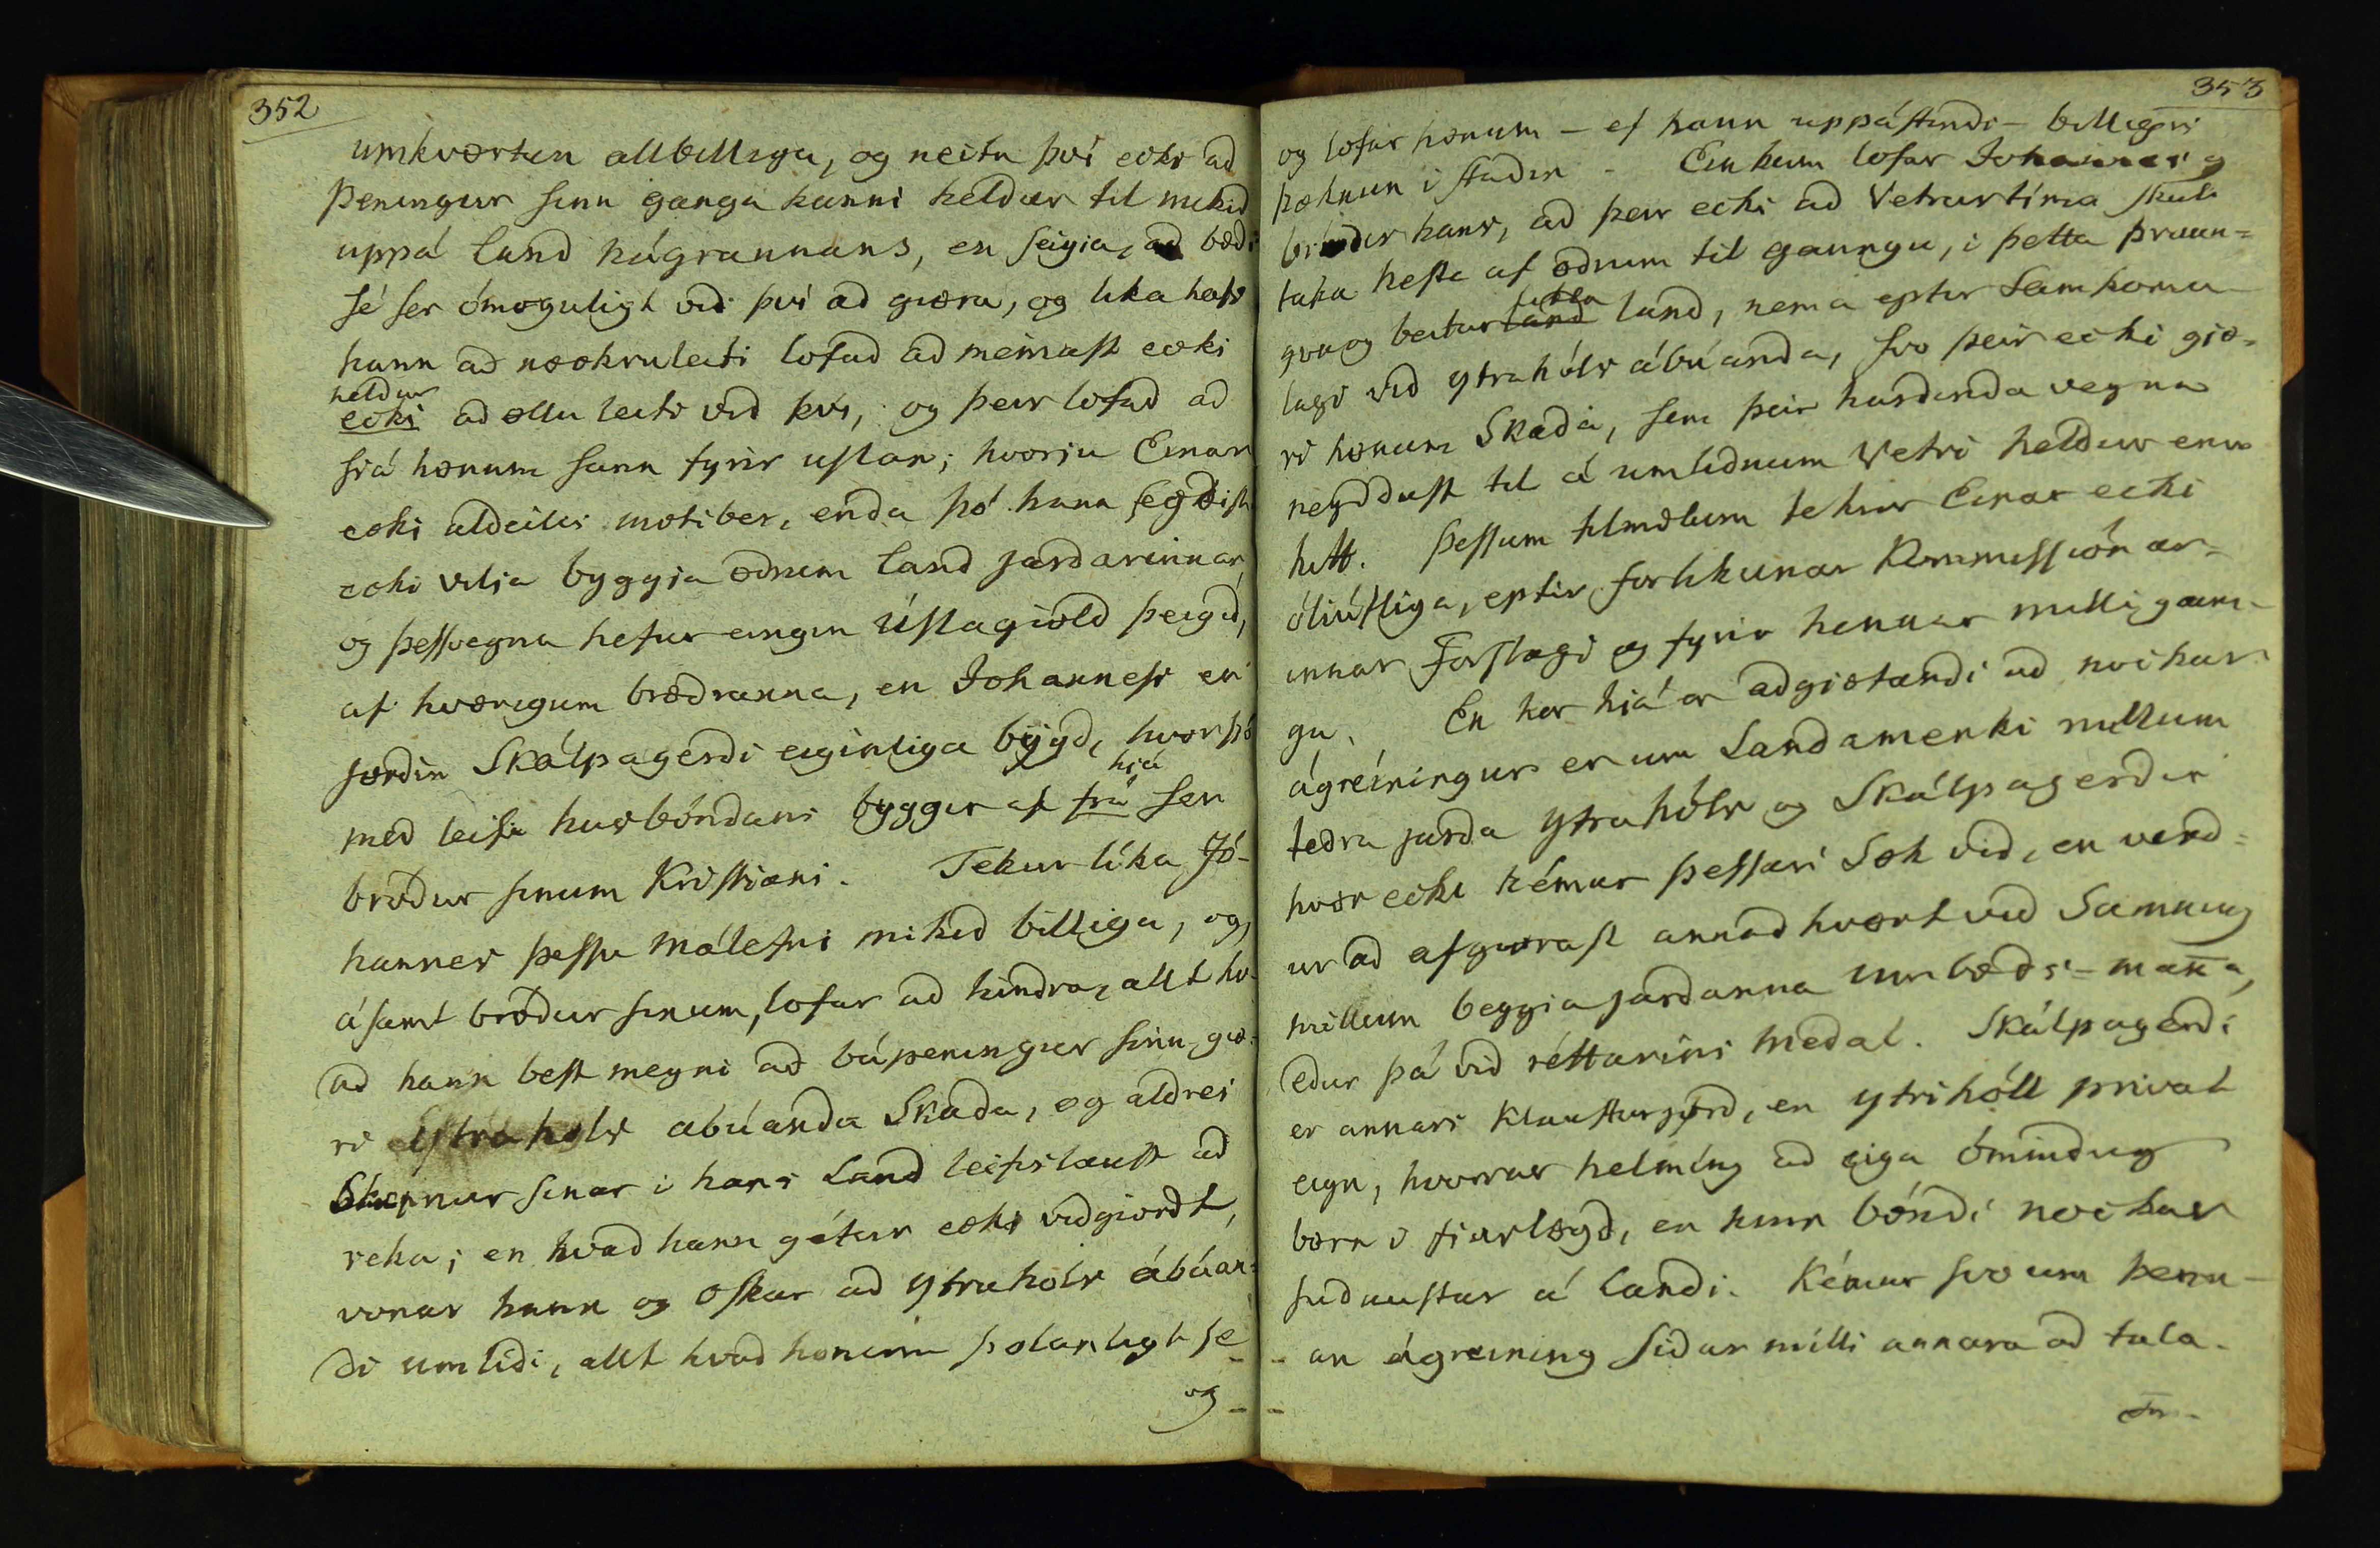 352
umkvörtun allbilliga, og neita því ecki að
Peningur sinn ganga kunni heldur til mikið
uppá land nágrannans, en seigia, að bæði
sé ser ómoguligt við því að giæra, og lika hafi
hann að nöckruleiti lofað að meinast ecki
heldur
ecki að öllu leiti við því, og þeir lofað að
slá hönum sann fyrir uslan; hvörju Einar
ecki aldeilis mótiber, enda þó hann segðist
ecki vilja byggja öðrum land jarðarinnar,
og þessvegna hefur eingin Uslagiöld þeigið,
af hvörigum bræðranna, en Johannesi er
jörðin Skálpagerði eiginliga bygð, hvör þó
hjá
með leifi husbóndans byggir af frá ser
bróður sinum Kristiáni. Tekur líka Jó-
hannes þessu málefni mikið billiga, og,
ásamt bróður sinum, lofar að hindra, allt hv-
að hann best megni að búpeningur sinn giö-
ri Ytrahóls abúanda Skaða, og aldrei
Skepnur sinar i hans Land leifislaust að
reka; en hvað hann gétur ecki viðgiördt,
vonar hann og oskar að Ytrahóls ábúan-
di umliði, allt hvað honum þolanligt se
og -
353
og lofar hönum - ef hann uppástendi - billigri
þöknun i staðin - Einkum lofar Johannes og
bróðir hans, að þeir ecki að Vetrartíma skuli
taka hesta af öðrum til gaungu, i þetta þraun-
litla
gva og beitarland land, nema eptir Samkomu-
lagi við Ytrahóls ábúanda, svo þeir ecki giö-
ri hönum Skaða, sem þeir harðinda vegna
neyddust til á umliðnum Vetri heldur enn
hitt. Þessum tilmælum tekur Einar ecki
óliúfliga, eptir forlikunar Kommissionar-
innar Forslagi og fyrir hennar milligaun-
gu. En hér hiá er aðgiætandi að nockur
ágreiningur er um Landamerki millum
teðra jarða Ytrahóls og Skálpagerdis
hvör ecki kémur þessari Sök við, en verð-
ur að afgiörast annaðhvört við Samning
millum beggia jarðanna Umboðs-mana,
eður þá við réttarins meðal. Skálpagerði
er annars Klausturjörð, en Ytrihóll privat
eign, hvörrar helming að eiga ómindug
börn i fiarlægð, en hinn bóndi nockur
suðaustur á Landi. Kémur svo um þenn-
- an ágreining siðar milli annara að tala.